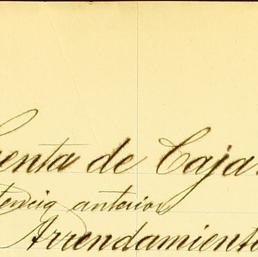 uenta de Caja.
tencia anterior
Arrendamiento